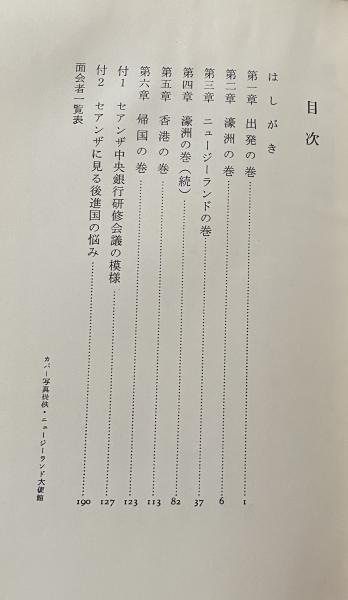 目次
はしがき
第一章 出発の巻……1
第二章 濠洲の巻……6
第三章 ニュージーランドの巻……37
第四章 濠洲の巻(続)……82
第五章 香港の巻……113
第六章 帰国の巻……123
付1 セアンザ中央銀行研修会議の模様……127
付2 セアンザに見る後進国の悩み……190
面会者一覧表
カバー写真提供・ニュージーランド大使館